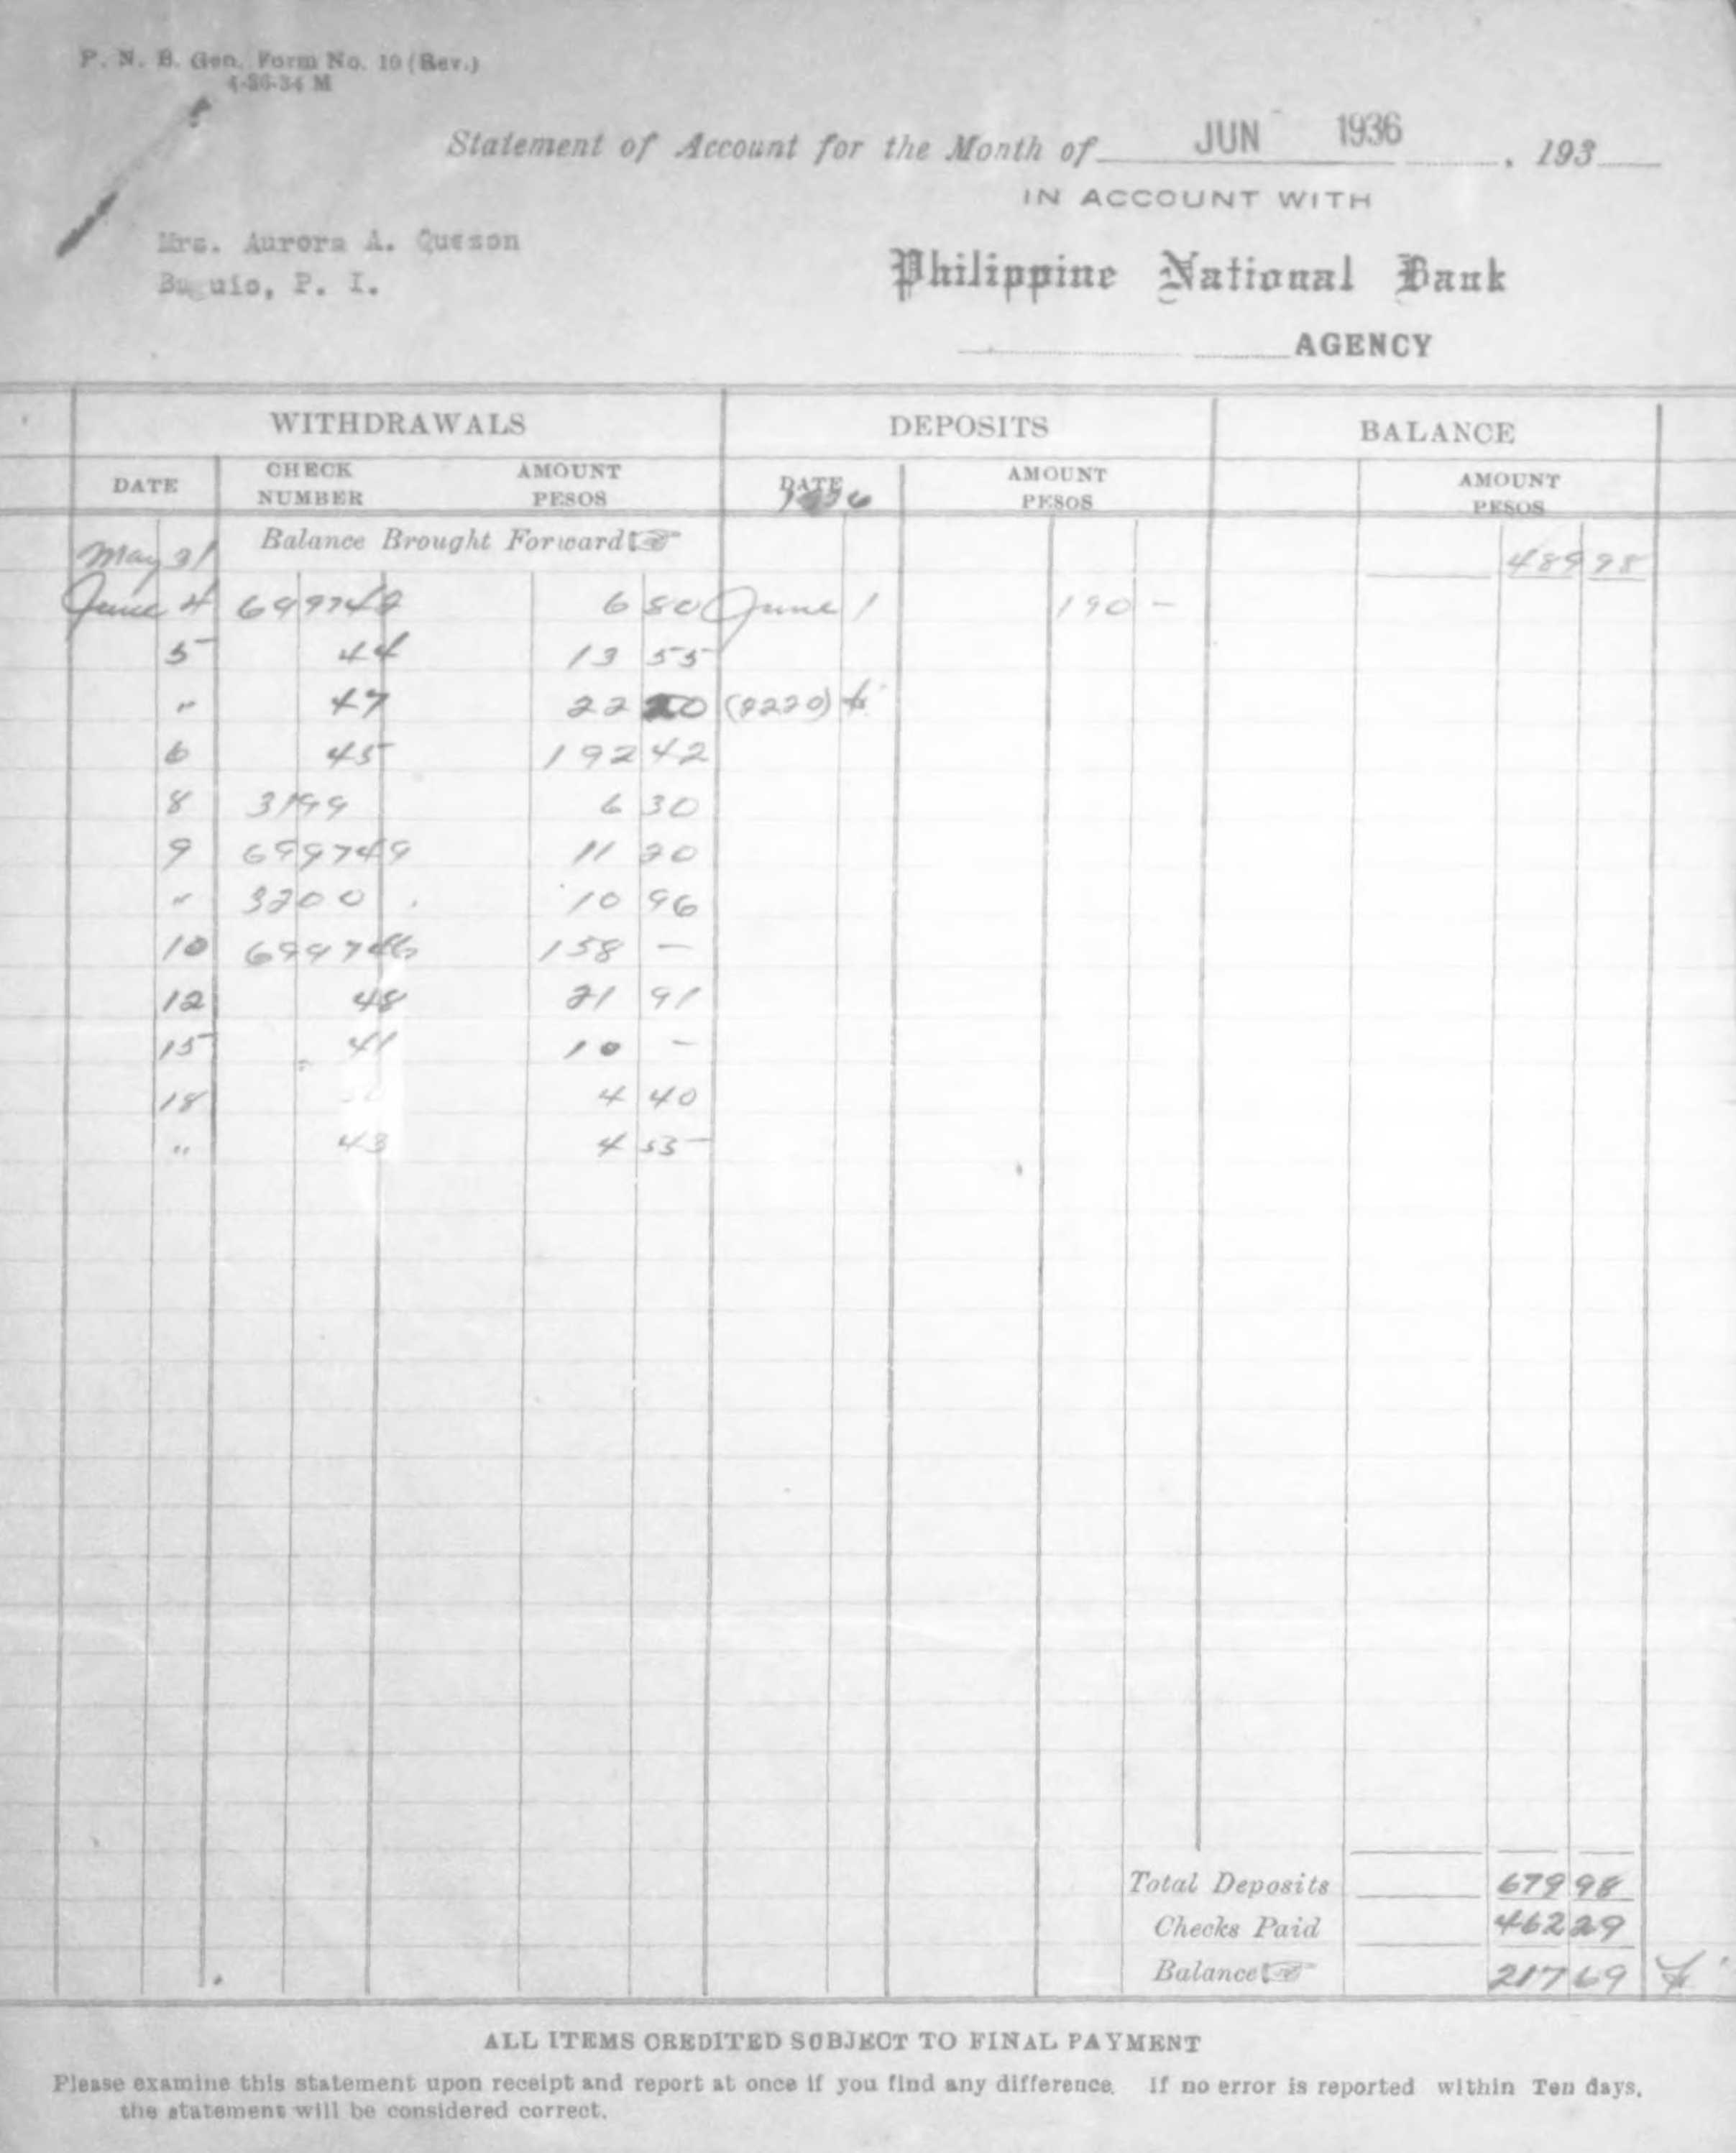 P. N. B. Gen. Form No. 10 (Rev.)
4-26-34 M
Statement of Account for the Month of JUN 1936, 193
IN ACCOUNT WITH
Mrs. Aurora A. Quezon
Baguio, P. I.
Philippine National Bank
AGENCY
WITHDRAWALS DEPOSITS BALANCE
DATE CHECK NUMBER AMOUNT PESOS DATE 1936 AMOUNT PESOS AMOUNT PESOS
May 31 Balance Brought Forward 489 98
June 4 6 80 June 1 190 -
5 44 13 55
" 47 22 20 (2220)
6 45 192 42
8 3199 6 30
9 699749 11 20
" 3200 10 96
10 699746 158 -
12 48 21 91
15 41 10 -
18 50 4 40
" 43 4 55
Total Deposits 679 98
Checks Paid 462 29
Balance 217 69
ALL ITEMS CREDITED SUBJECT TO FINAL PAYMENT
Please examine this statement upon receipt and report at once if you find any difference. If no error is reported within Ten days,
the statement will be considered correct.